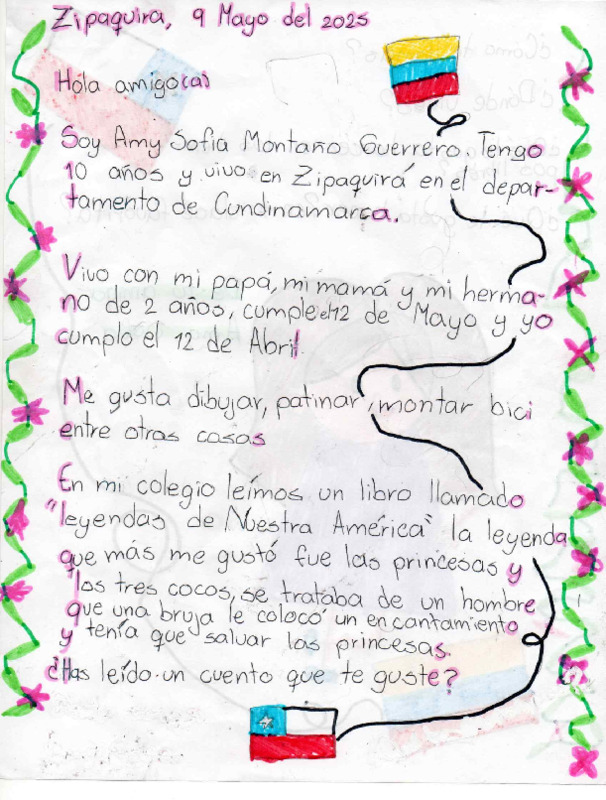 Zipaquira, 9 Mayo del 2025
Hola amigo(a)
Soy Amy Sofia Montaño Guerrero. Tengo
10 años y vivo en Zipaquirá en el depar-
tamento de Cundinamarca.
Vivo con mi papá, mi mamá y mi herma-
no de 2 años, cumple el 12 de Mayo y yo
cumplo el 12 de Abril.
Me gusta dibujar, patinar, montar bici
entre otras cosas
En mi colegio leímos un libro llamado
"leyendas de Nuestra América" la leyenda
que más me gustó fue las princesas y
los tres cocos, se trataba de un hombre
que una bruja le colocó un encantamiento
y tenía que saluar las princesas.
¿Has leído un cuento que te guste?